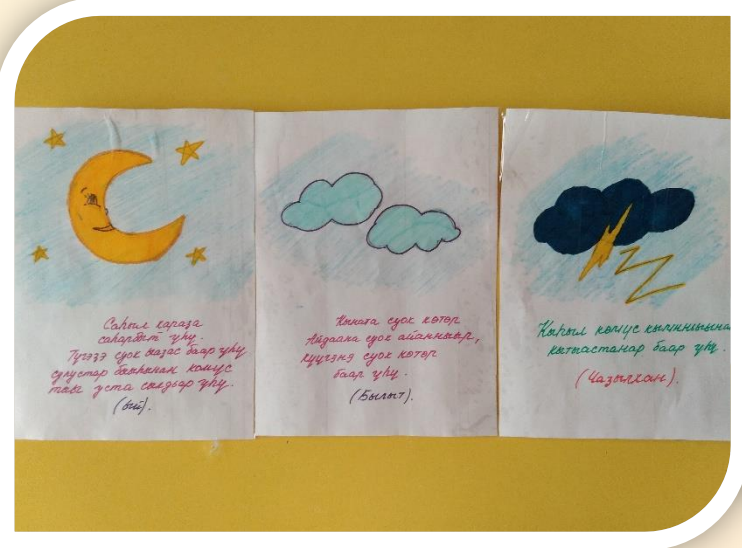 Саһыл хараҕа
саһарбыт үһү.
Түгэҕэ суох ыаҕас баар үһү
сулустар быыһынан көмүс
таас уста сылдьар үһү.
(ый).
Кыната суох көтөр
Айдаана суох айанныыр,
куугэнэ суох көтөр
баар үһү.
(Былыт).
Кыһыл көмүс кымньыынан
кытыастанар баар үһү.
(Чаҕылҕан).